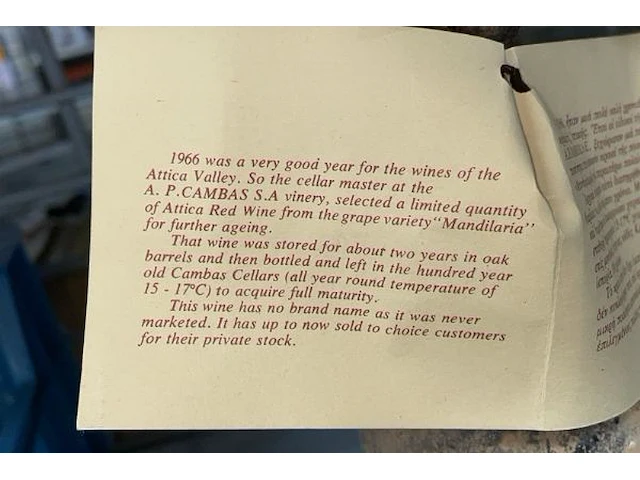 1966 was a very good year for the wines of the
Attica Valley. So the cellar master at the
A. P.CAMBAS S.A vinery, selected a limited quantity
of Attica Red Wine from the grape variety "Mandilaria"
for further ageing.
That wine was stored for about two years in oak
barrels and then bottled and left in the hundred year
old Cambas Cellars (all year round temperature of
15 - 17°C) to acquire full maturity.
This wine has no brand name as it was never
marketed. It has up to now sold to choice customers
for their private stock.